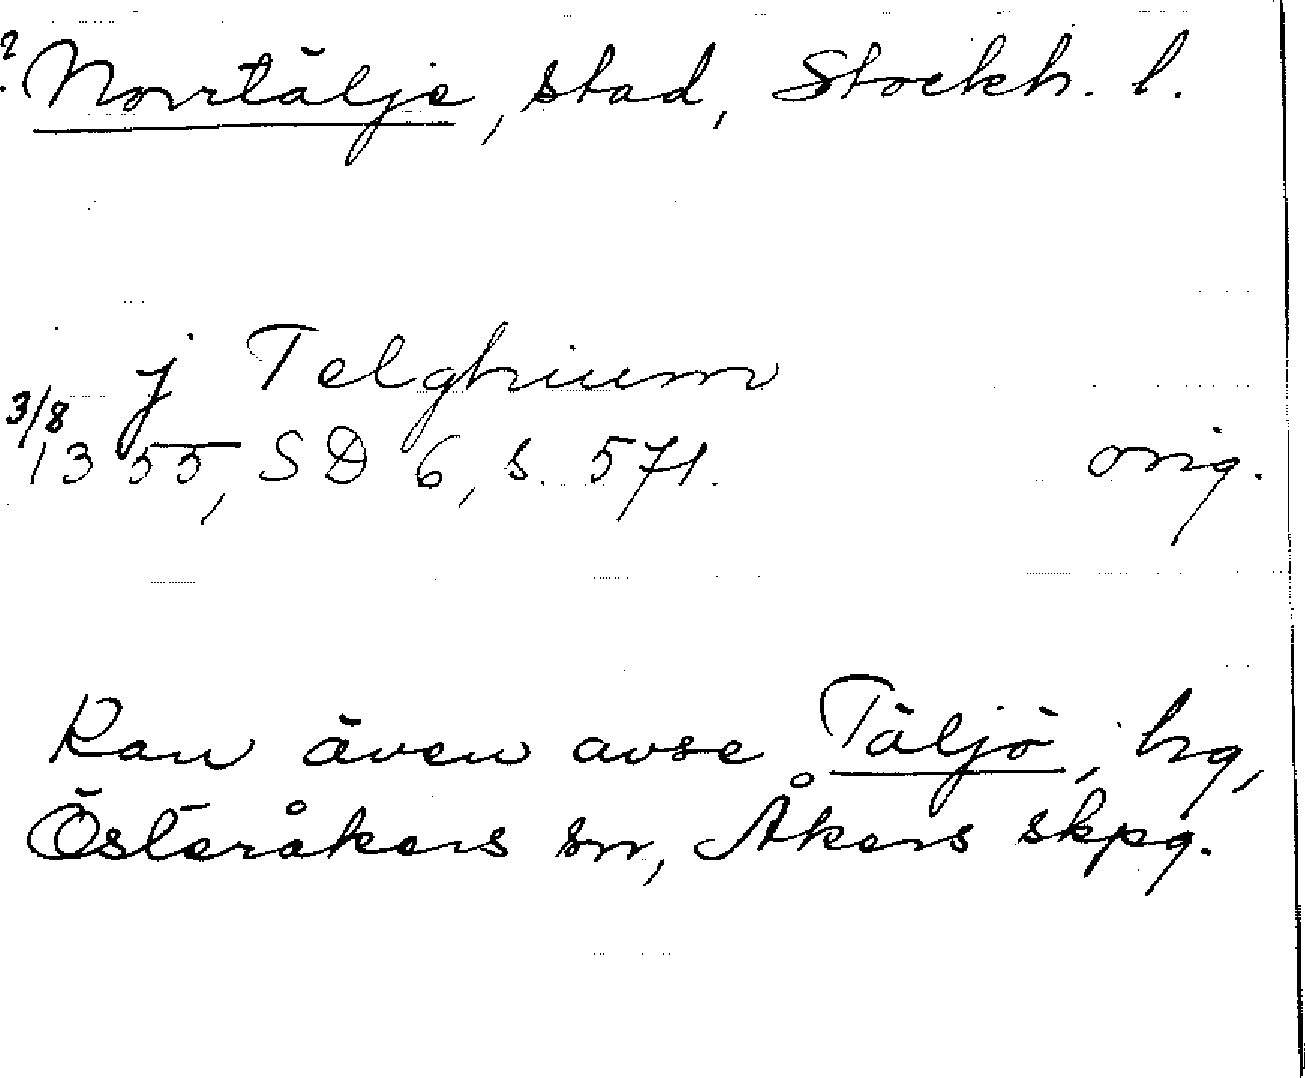 ? Norrtälje, stad, Stockh. l.
j Telghium
3/8
1355, SD 6, s. 571. orig.
Kan även avse Täljö, by,
Österåkers sn, Åkers skpg.